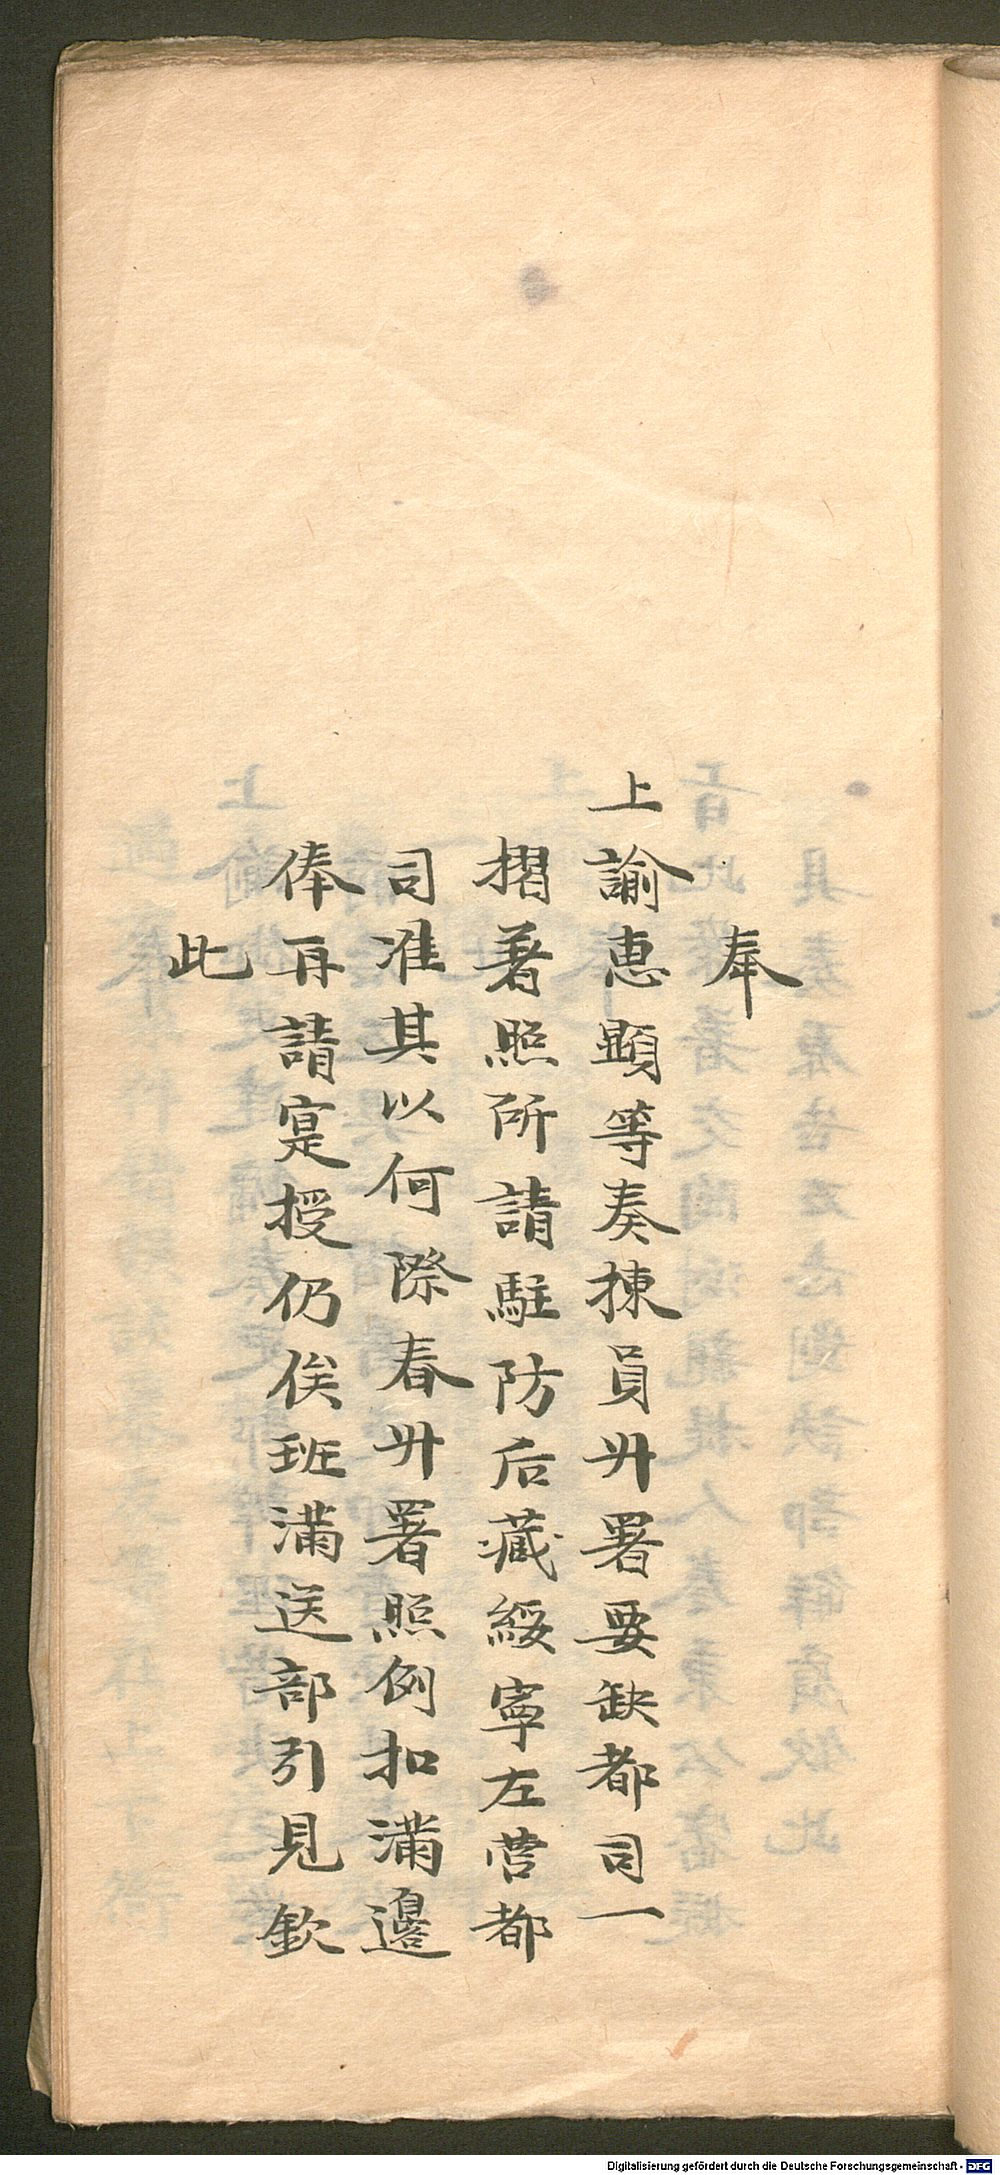 奉
上諭惠顯等奏揀員升署要缺都司一
摺著照所請駐防后藏綏寧左營都
司准其以何際春升署照例扣滿邊
俸再請寔授仍俟班滿送部引見欽
此
Digitalisierung gefördert durch die Deutsche Forschungsgemeinschaft - DFG